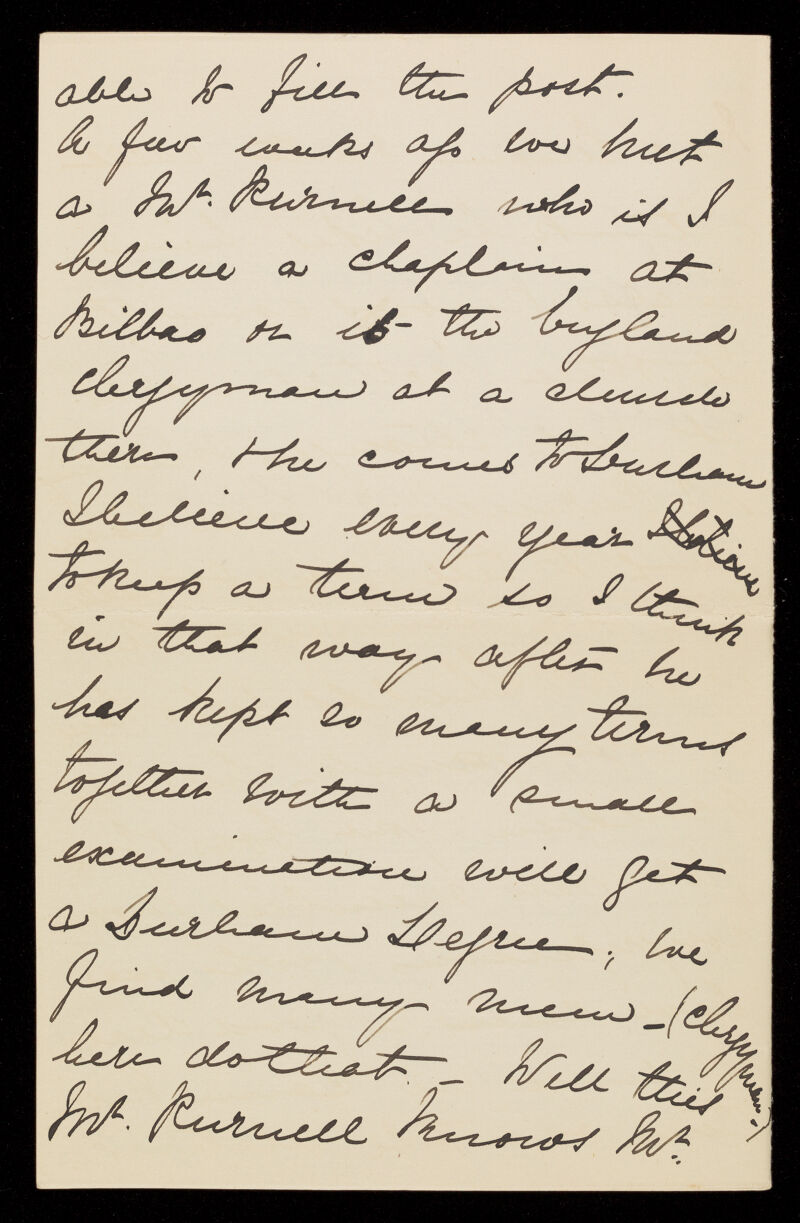 able to fill the post.
A few weeks ago we met
a Mr. Purnell who is I
believe a chaplain at
Bilbao or is the England
clergyman at a church
there, & he comes to Durham
I believe every year I believe
to keep a term so I think
in that way after he
has kept so many terms
together with a small
examination will get
a Durham Degree; we
find many men - (clergymen -)
here do that. - Well this
Mr. Purnell knows Mr.